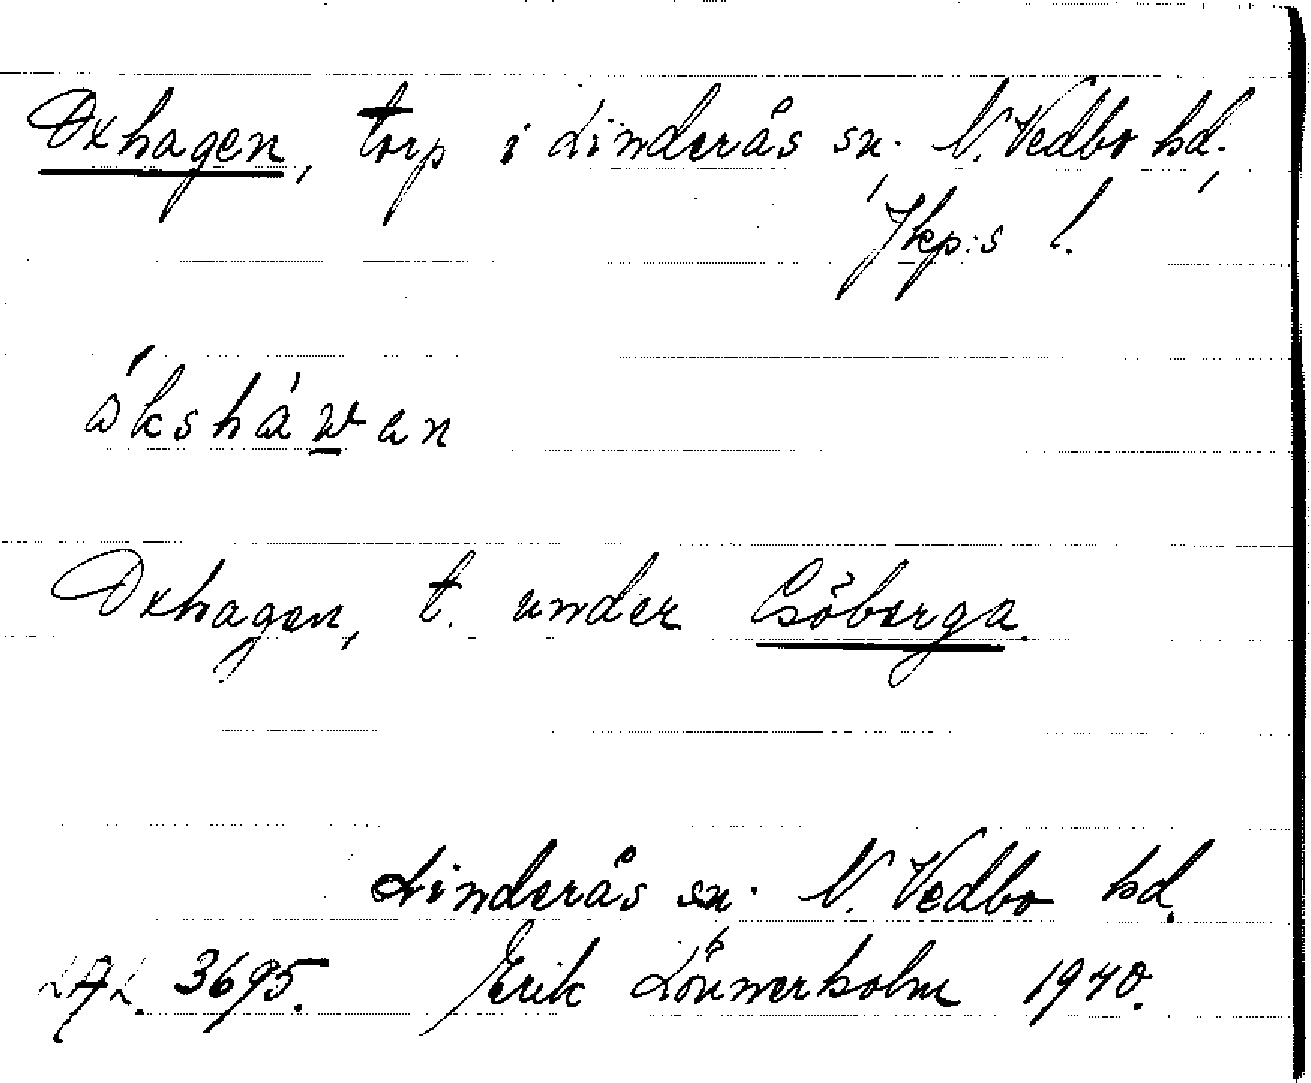 Oxhagen, torp i Linderås sn. N. Vedbo hd.,
Jkp:s l.
åksháwan
Oxhagen, t. under Esöberga.
Linderås sn. N. Vedbo hd.
LAL. 3695. Erik Lönnerholm 1940.